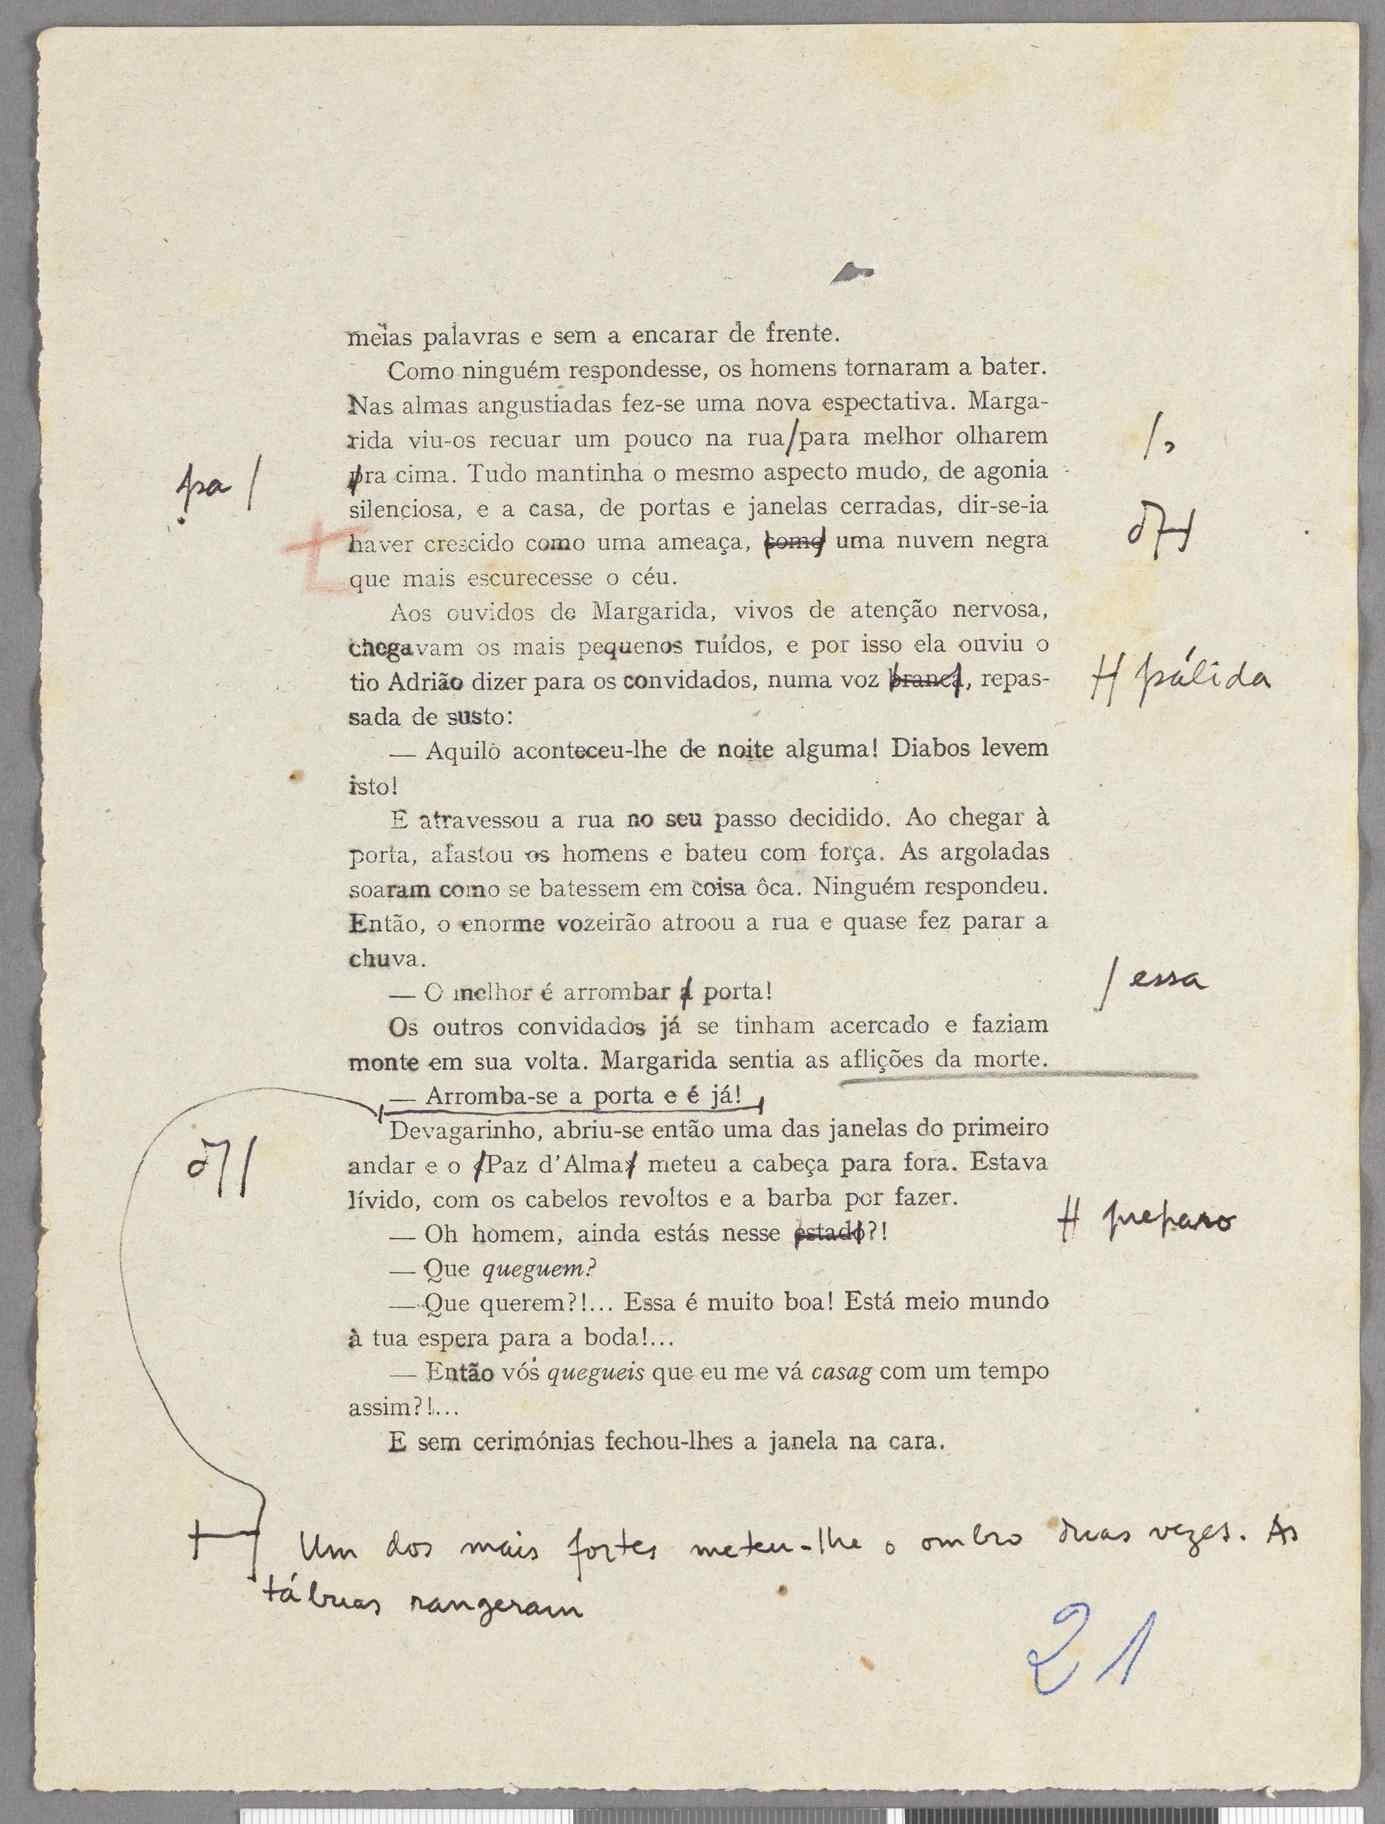 meias palavras e sem a encarar de frente.
Como ninguém respondesse, os homens tornaram a bater.
Nas almas angustiadas fez-se uma nova espectativa. Marga-
rida viu-os recuar um pouco na rua/para melhor olharem
/,
pra cima. Tudo mantinha o mesmo aspecto mudo, de agonia
pa /
silenciosa, e a casa, de portas e janelas cerradas, dir-se-ia
haver crescido como uma ameaça, como uma nuvem negra
que mais escurecesse o céu.
Aos ouvidos de Margarida, vivos de atenção nervosa,
chegavam os mais pequenos ruídos, e por isso ela ouviu o
tio Adrião dizer para os convidados, numa voz branca, repas-
H pálida
sada de susto:
— Aquilo aconteceu-lhe de noite alguma! Diabos levem
isto!
E atravessou a rua no seu passo decidido. Ao chegar à
porta, afastou os homens e bateu com força. As argoladas
soaram como se batessem em coisa ôca. Ninguém respondeu.
Então, o enorme vozeirão atroou a rua e quase fez parar a
chuva.
— O melhor é arrombar a porta!
/ essa
Os outros convidados já se tinham acercado e faziam
monte em sua volta. Margarida sentia as aflições da morte.
— Arromba-se a porta e é já!
Devagarinho, abriu-se então uma das janelas do primeiro
andar e o /Paz d'Alma/ meteu a cabeça para fora. Estava
lívido, com os cabelos revoltos e a barba por fazer.
— Oh homem, ainda estás nesse estado?!
H preparo
— Que queguem?
— Que querem?!... Essa é muito boa! Está meio mundo
à tua espera para a boda!...
— Então vós quegueis que eu me vá casag com um tempo
assim?!...
E sem cerimónias fechou-lhes a janela na cara.
Um dos mais fortes meteu-lhe o ombro duas vezes. As
tábuas rangeram
21